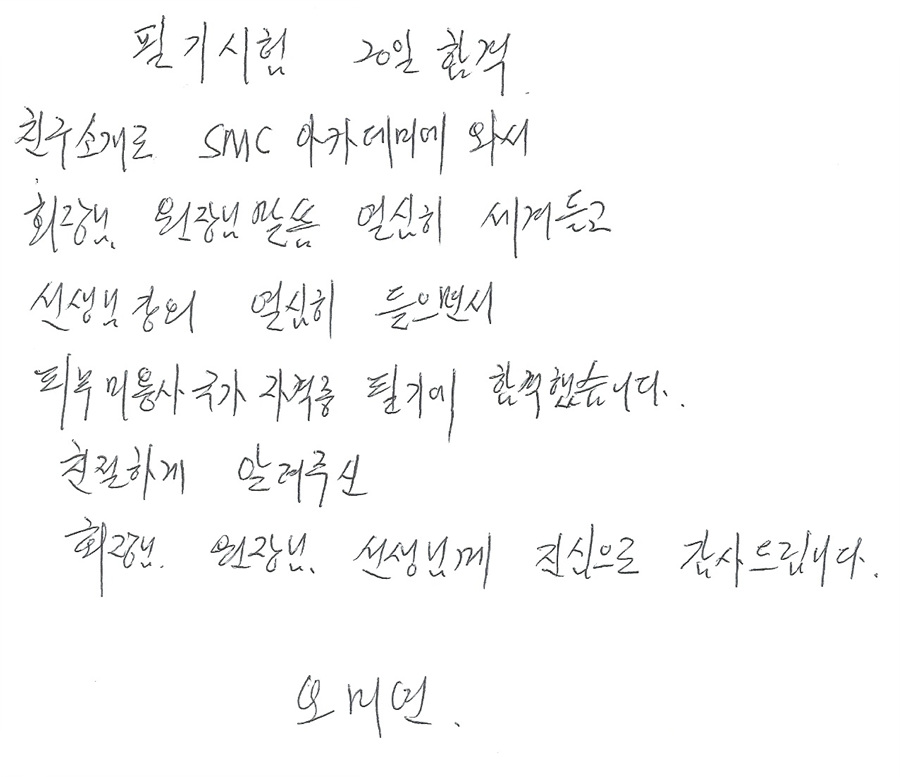 필기시험 20일 합격.
친구소개로 SMC 아카데미에 와서
회장님, 원장님 말씀 열심히 세겨듣고
선생님 강의 열심히 들으면서
피부미용사 국가 자격증 필기에 합격했습니다..
친절하게 알려주신
회장님. 원장님. 선생님께 진심으로 감사드립니다.
오미연.